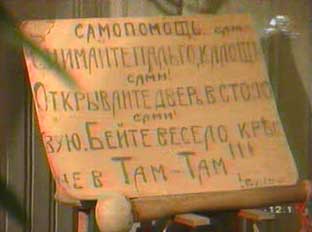 САМОПОМОЩЬ. САМИ
СНИМАЙТЕ ПАЛЬТО, КАЛОШИ
САМИ!
ОТКРЫВАЙТЕ ДВЕРЬ В СТОЛО
САМИ!
ВУЮ. БЕЙТЕ ВЕСЕЛО, КРѢП
ЧЕ В ТАМ-ТАМ"!!!
12:1